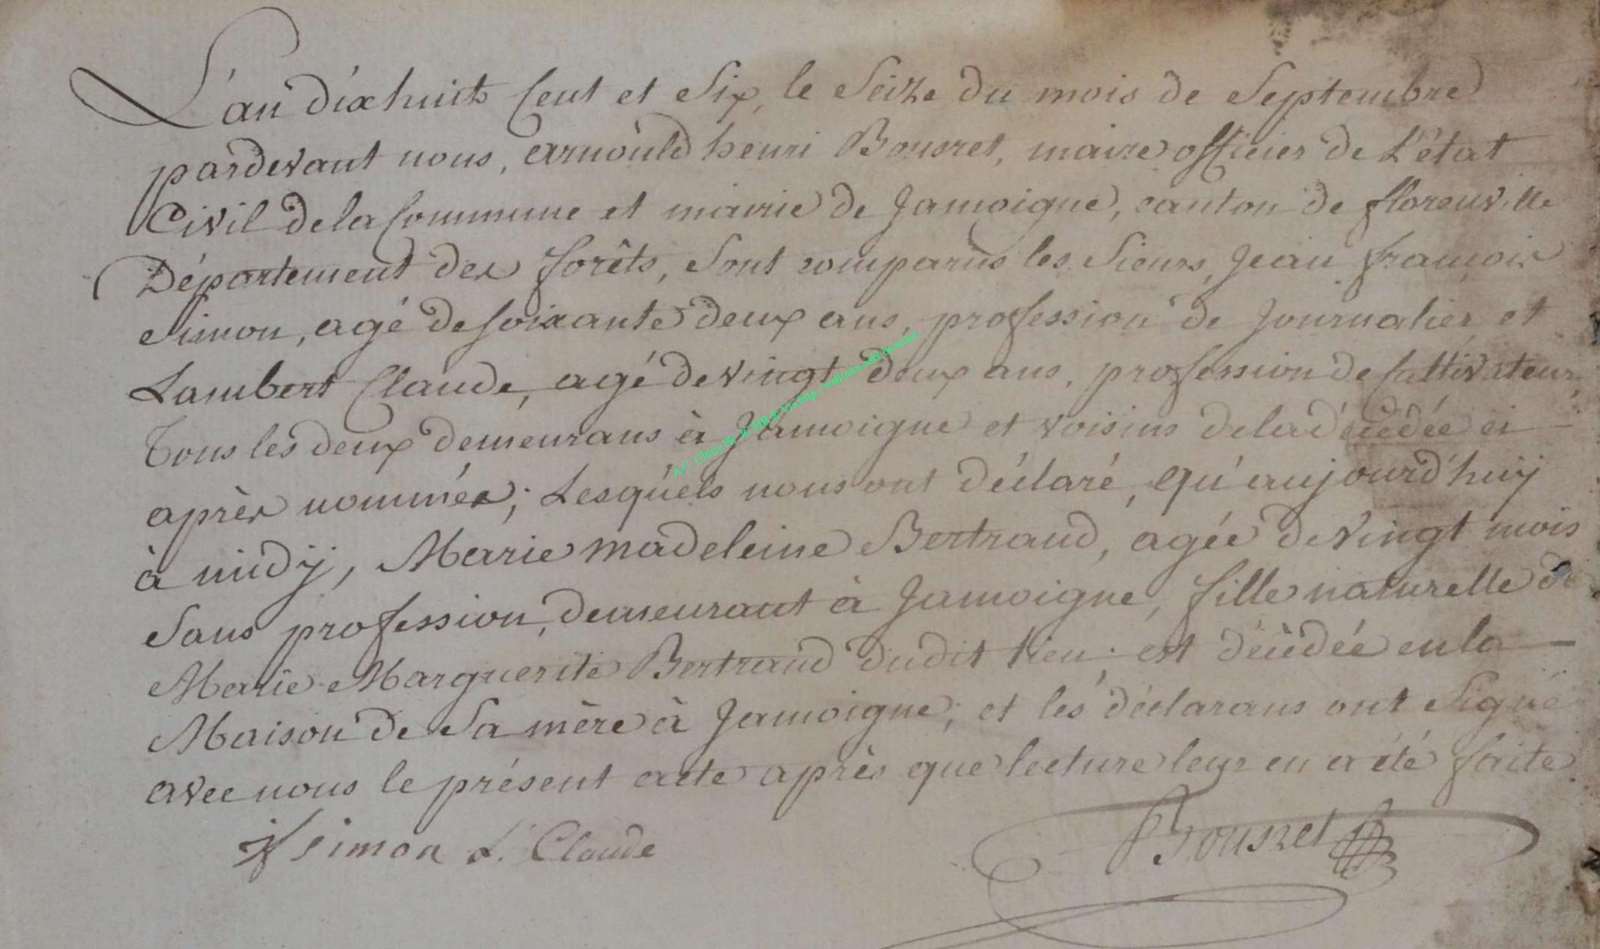 L'an dixhuit Cent et Six, le Seize du mois de Septembre
pardevant nous, arnould henri Bousret, maire officier de L'état
Civil de la Commune et mairie de Jamoigne, canton de florenville
Département des forêts, Sont comparus les Sieurs, Jean françois
Simon, agé de soixante deux ans, profession de Journalier et
Lambert Claude, agé de vingt deux ans, profession de Cultivateur,
Tous les deux demeurans à Jamoigne et voisins de la décédée ci
après nommée; Lesquels nous ont déclaré, qu'aujourd'huij
à midij, Marie madeleine Bertrand, agée de vingt mois
Sans profession, demeurant à Jamoigne, fille naturelle de
Marie Marguerite Bertrand dudit lieu est décédée en la
Maison de Sa mère à Jamoigne; et les déclarans ont Signé
avec nous le présent acte après que lecture leur en a été faite.
jf simon L. Claude Bousret